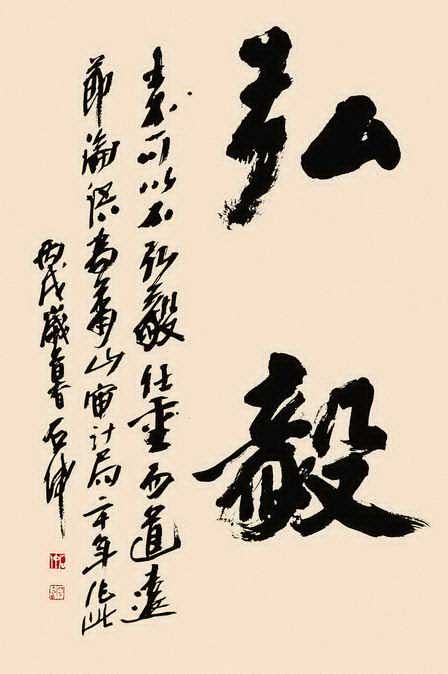 弘毅
士不可以不弘毅任重而道遠
節論語為蕭山審計局二十年作此
丙戌歲春石